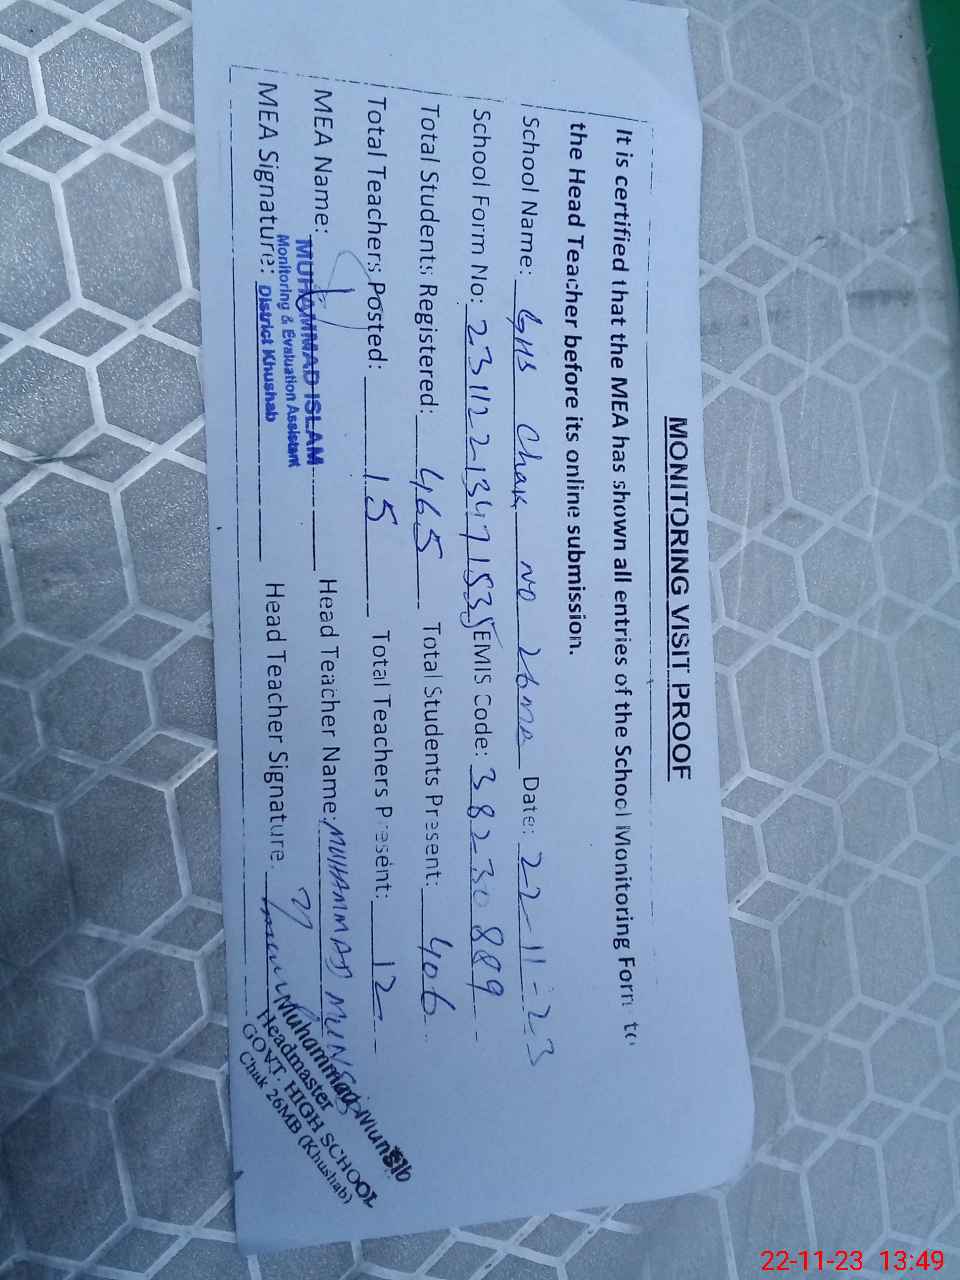 MONITORING VISIT PROOF
It is certified that the MEA has shown all entries of the School Monitoring Form to
the Head Teacher before its online submission.
School Name: GHS Chak No 26MB Date: 22-11-23
School Form No: EMIS Code: 38230889
Total Students Registered: 465 Total Students Present: 406
Total Teachers Posted: 15 Total Teachers Present: 12
MEA Name: MUHAMMAD ISLAM Head Teacher Name: MUHAMMAD MUNSIB
Monitoring & Evaluation Assistant
MEA Signature: District Khushab Head Teacher Signature:
Muhammad Munsib
Headmaster
GOVT: HIGH SCHOOL
Chak 26MB (Khushab)
22-11-23 13:49